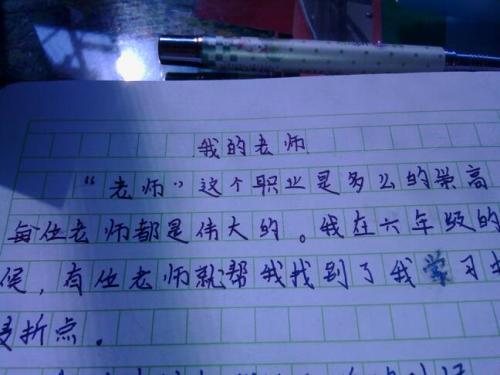 我的老师
“老师”这个职业是多么的崇高
每位老师都是伟大的。我在六年级的
候，有位老师就帮我找到了我学习
折点。